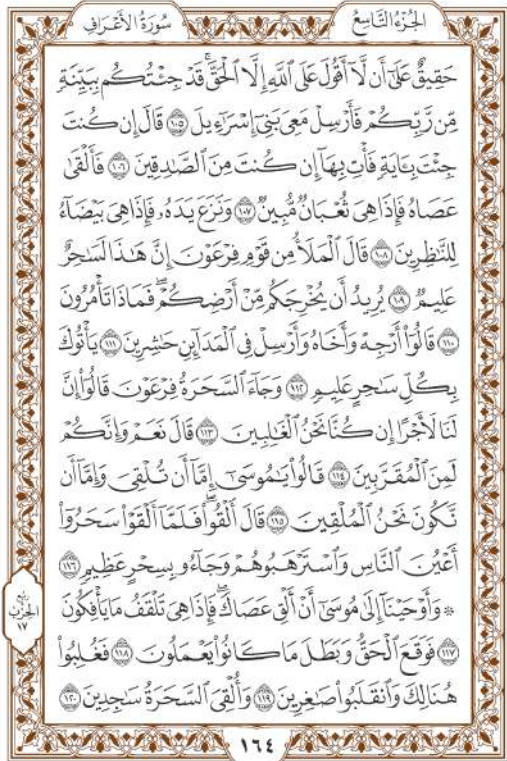 الجُزْءُ التَّاسِعُ
سُورَةُ الأَعْرَافِ
حَقِيقٌ عَلَىٰٓ أَن لَّآ أَقُولَ عَلَى ٱللَّهِ إِلَّا ٱلۡحَقَّۚ قَدۡ جِئۡتُكُم بِبَيِّنَةٖ
مِّن رَّبِّكُمۡ فَأَرۡسِلۡ مَعِيَ بَنِيٓ إِسۡرَٰٓءِيلَ ١٠٥ قَالَ إِن كُنتَ
جِئۡتَ بِـَٔايَةٖ فَأۡتِ بِهَآ إِن كُنتَ مِنَ ٱلصَّٰدِقِينَ ١٠٦ فَأَلۡقَىٰ
عَصَاهُ فَإِذَا هِيَ ثُعۡبَانٞ مُّبِينٞ ١٠٧ وَنَزَعَ يَدَهُۥ فَإِذَا هِيَ بَيۡضَآءُ
لِلنَّٰظِرِينَ ١٠٨ قَالَ ٱلۡمَلَأُ مِن قَوۡمِ فِرۡعَوۡنَ إِنَّ هَٰذَا لَسَٰحِرٌ
عَلِيمٞ ١٠٩ يُرِيدُ أَن يُخۡرِجَكُم مِّنۡ أَرۡضِكُمۡۖ فَمَاذَا تَأۡمُرُونَ
١١٠ قَالُوٓاْ أَرۡجِهۡ وَأَخَاهُ وَأَرۡسِلۡ فِي ٱلۡمَدَآئِنِ حَٰشِرِينَ ١١١ يَأۡتُوكَ
بِكُلِّ سَٰحِرٍ عَلِيمٖ ١١٢ وَجَآءَ ٱلسَّحَرَةُ فِرۡعَوۡنَ قَالُوٓاْ إِنَّ
لَنَا لَأَجۡرًا إِن كُنَّا نَحۡنُ ٱلۡغَٰلِبِينَ ١١٣ قَالَ نَعَمۡ وَإِنَّكُمۡ
لَمِنَ ٱلۡمُقَرَّبِينَ ١١٤ قَالُواْ يَٰمُوسَىٰٓ إِمَّآ أَن تُلۡقِيَ وَإِمَّآ أَن
نَّكُونَ نَحۡنُ ٱلۡمُلۡقِينَ ١١٥ قَالَ أَلۡقُواْۖ فَلَمَّآ أَلۡقَوۡاْ سَحَرُوٓاْ
أَعۡيُنَ ٱلنَّاسِ وَٱسۡتَرۡهَبُوهُمۡ وَجَآءُو بِسِحۡرٍ عَظِيمٖ ١١٦
۞ وَأَوۡحَيۡنَآ إِلَىٰ مُوسَىٰٓ أَنۡ أَلۡقِ عَصَاكَۖ فَإِذَا هِيَ تَلۡقَفُ مَا يَأۡفِكُونَ
١١٧ فَوَقَعَ ٱلۡحَقُّ وَبَطَلَ مَا كَانُواْ يَعۡمَلُونَ ١١٨ فَغُلِبُواْ
هُنَالِكَ وَٱنقَلَبُواْ صَٰغِرِينَ ١١٩ وَأُلۡقِيَ ٱلسَّحَرَةُ سَٰجِدِينَ ١٢٠
ربع
الحزب
١٧
١٦٤